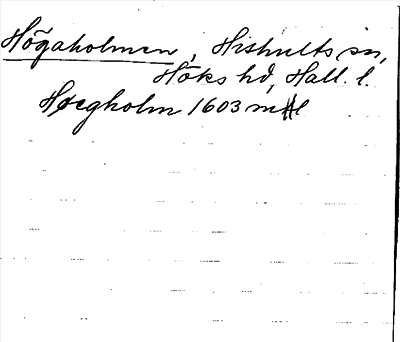 Högaholmen, Hishults sn,
Höks hd, Hall. l.
Hoegholm 1603